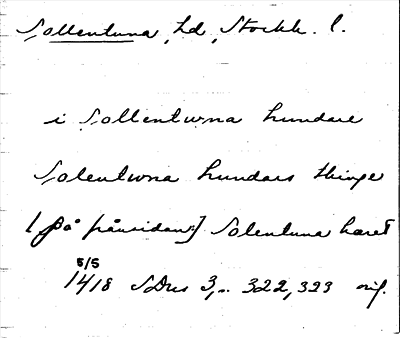 Sollentuna, hd, Stockh. l.
i Sollentuna hundare
Solentuna hundars thinge
[på frånsidan:] Solentuna häret
5/5
1418 SDns 3, 322, 323 orig.